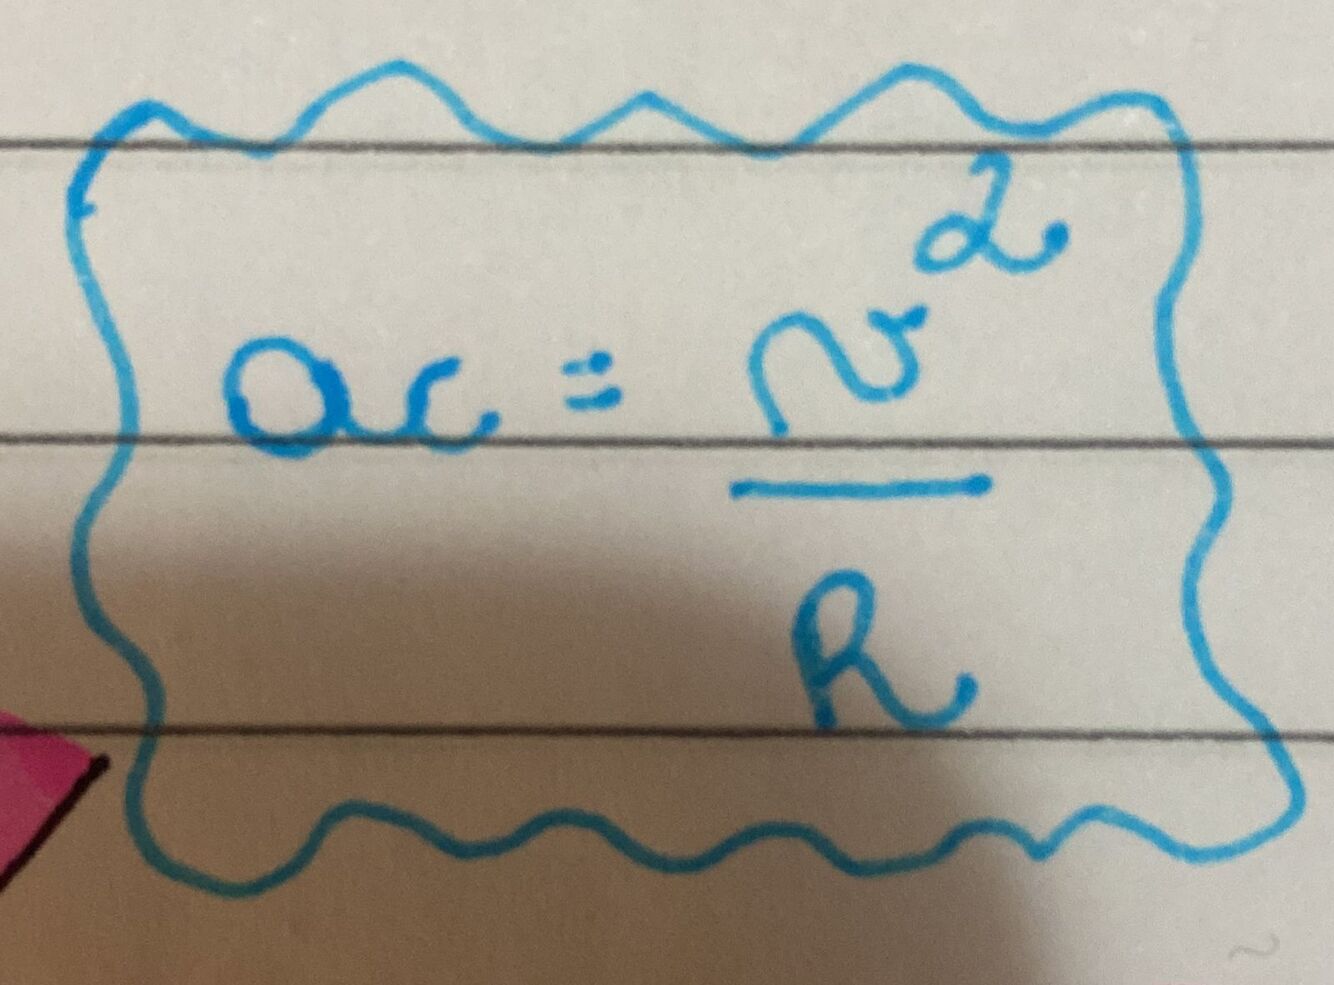 ac = v²
R